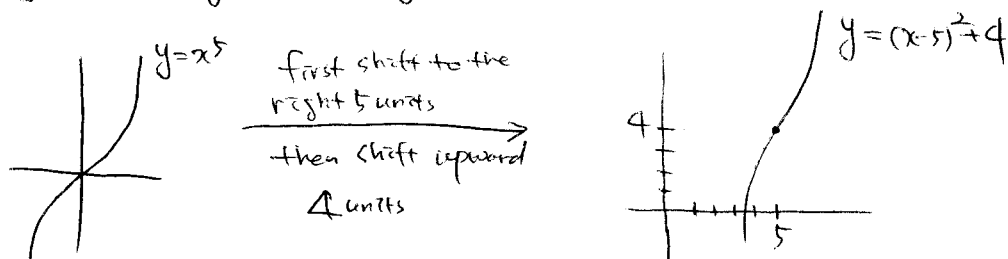 y=x^5
first shift to the
right 5 units
then shift upward
4 units
y=(x-5)^2+4
4
5